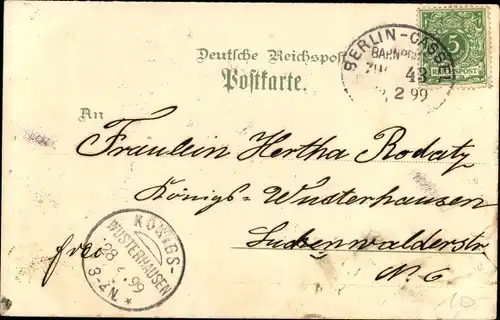 BERLIN-CASSEL
BAHNPOST
ZUG 43
2 99
5
REICHSPOST
Deutsche Reichspost
Postkarte.
An
Fräulein Hertha Rodatz
Königs-Wusterhausen
Luckenwalderstr.
N. 6
frei
KÖNIGS-
WUSTERHAUSEN
28 99
3-4 N.
10.-